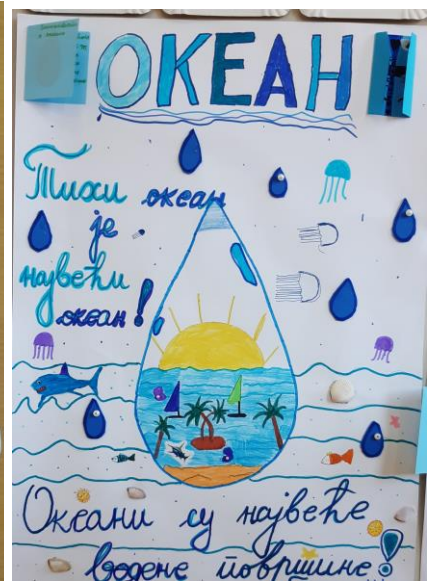 ОКЕАН
Тихи океан
је
највећи
океан!
Океани су највеће
водене површине!